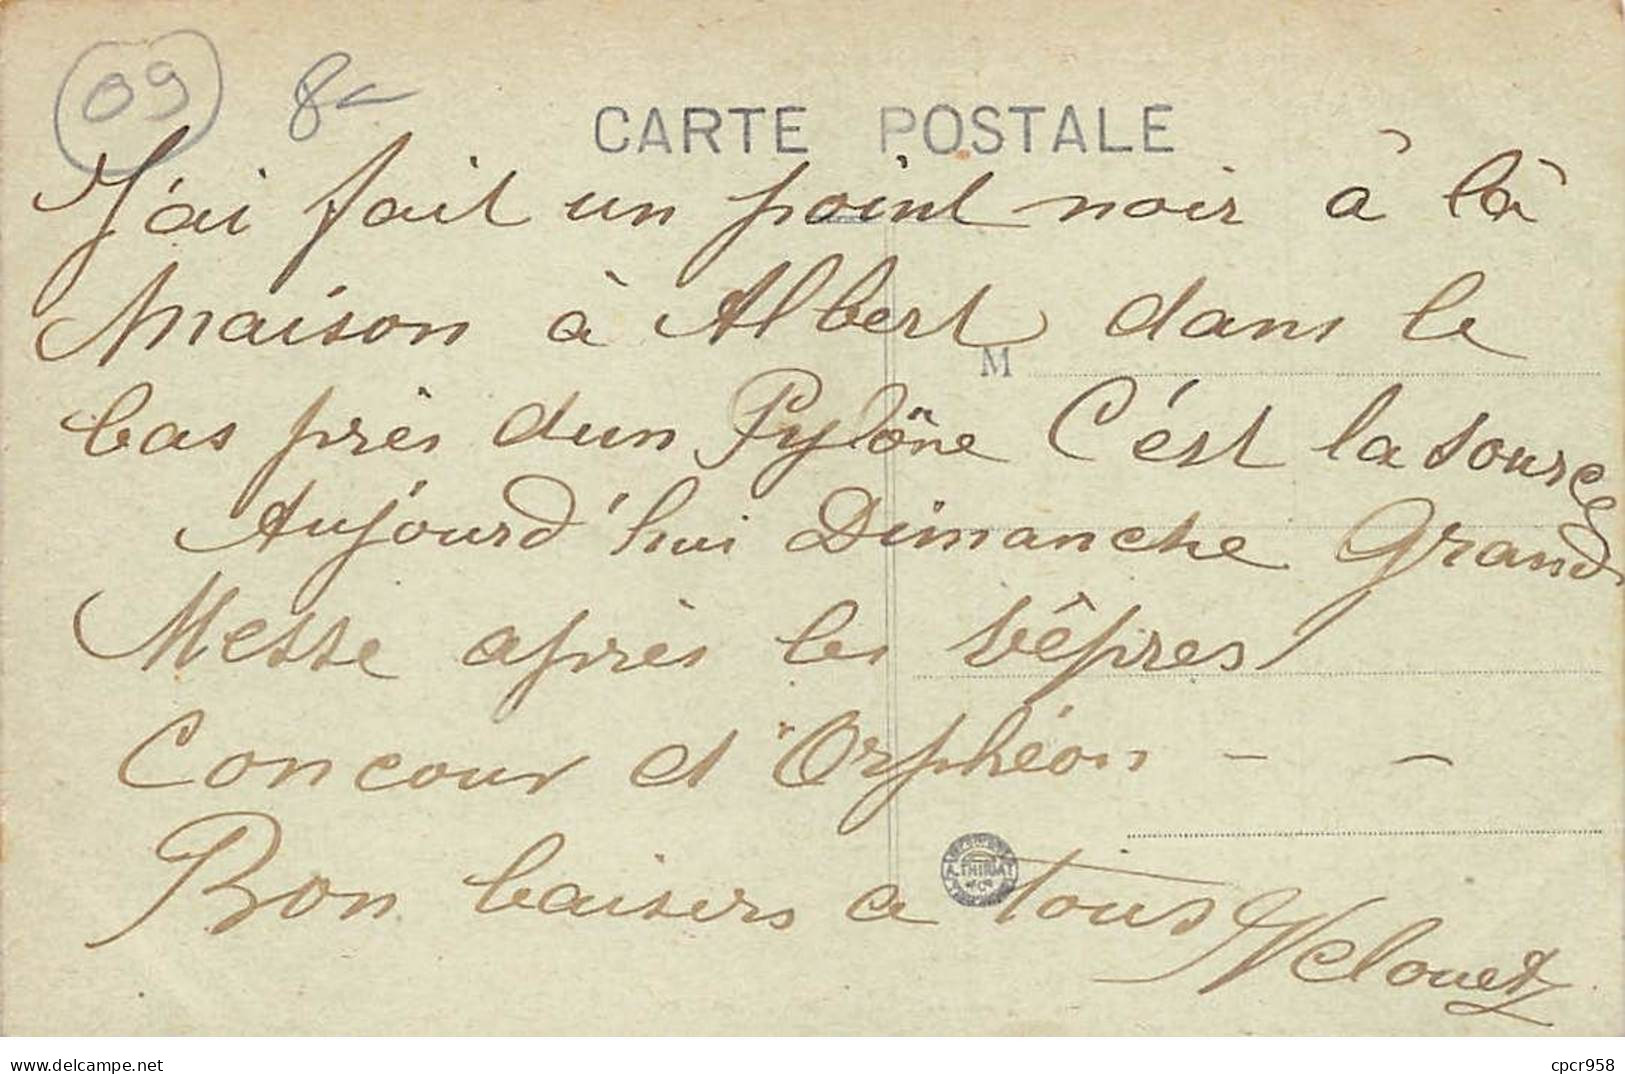 09 8
CARTE POSTALE
J'ai fait un point noir à là
maison à Albert dans le
M
bas près dun Pylône C'est la source
Aujourd'hui Dimanche Grand
Messe après les Vêpres
Concour d'Orphéon - -
Bon baisers a tous
A. THIRIAT
delcampe.net
cpcr958